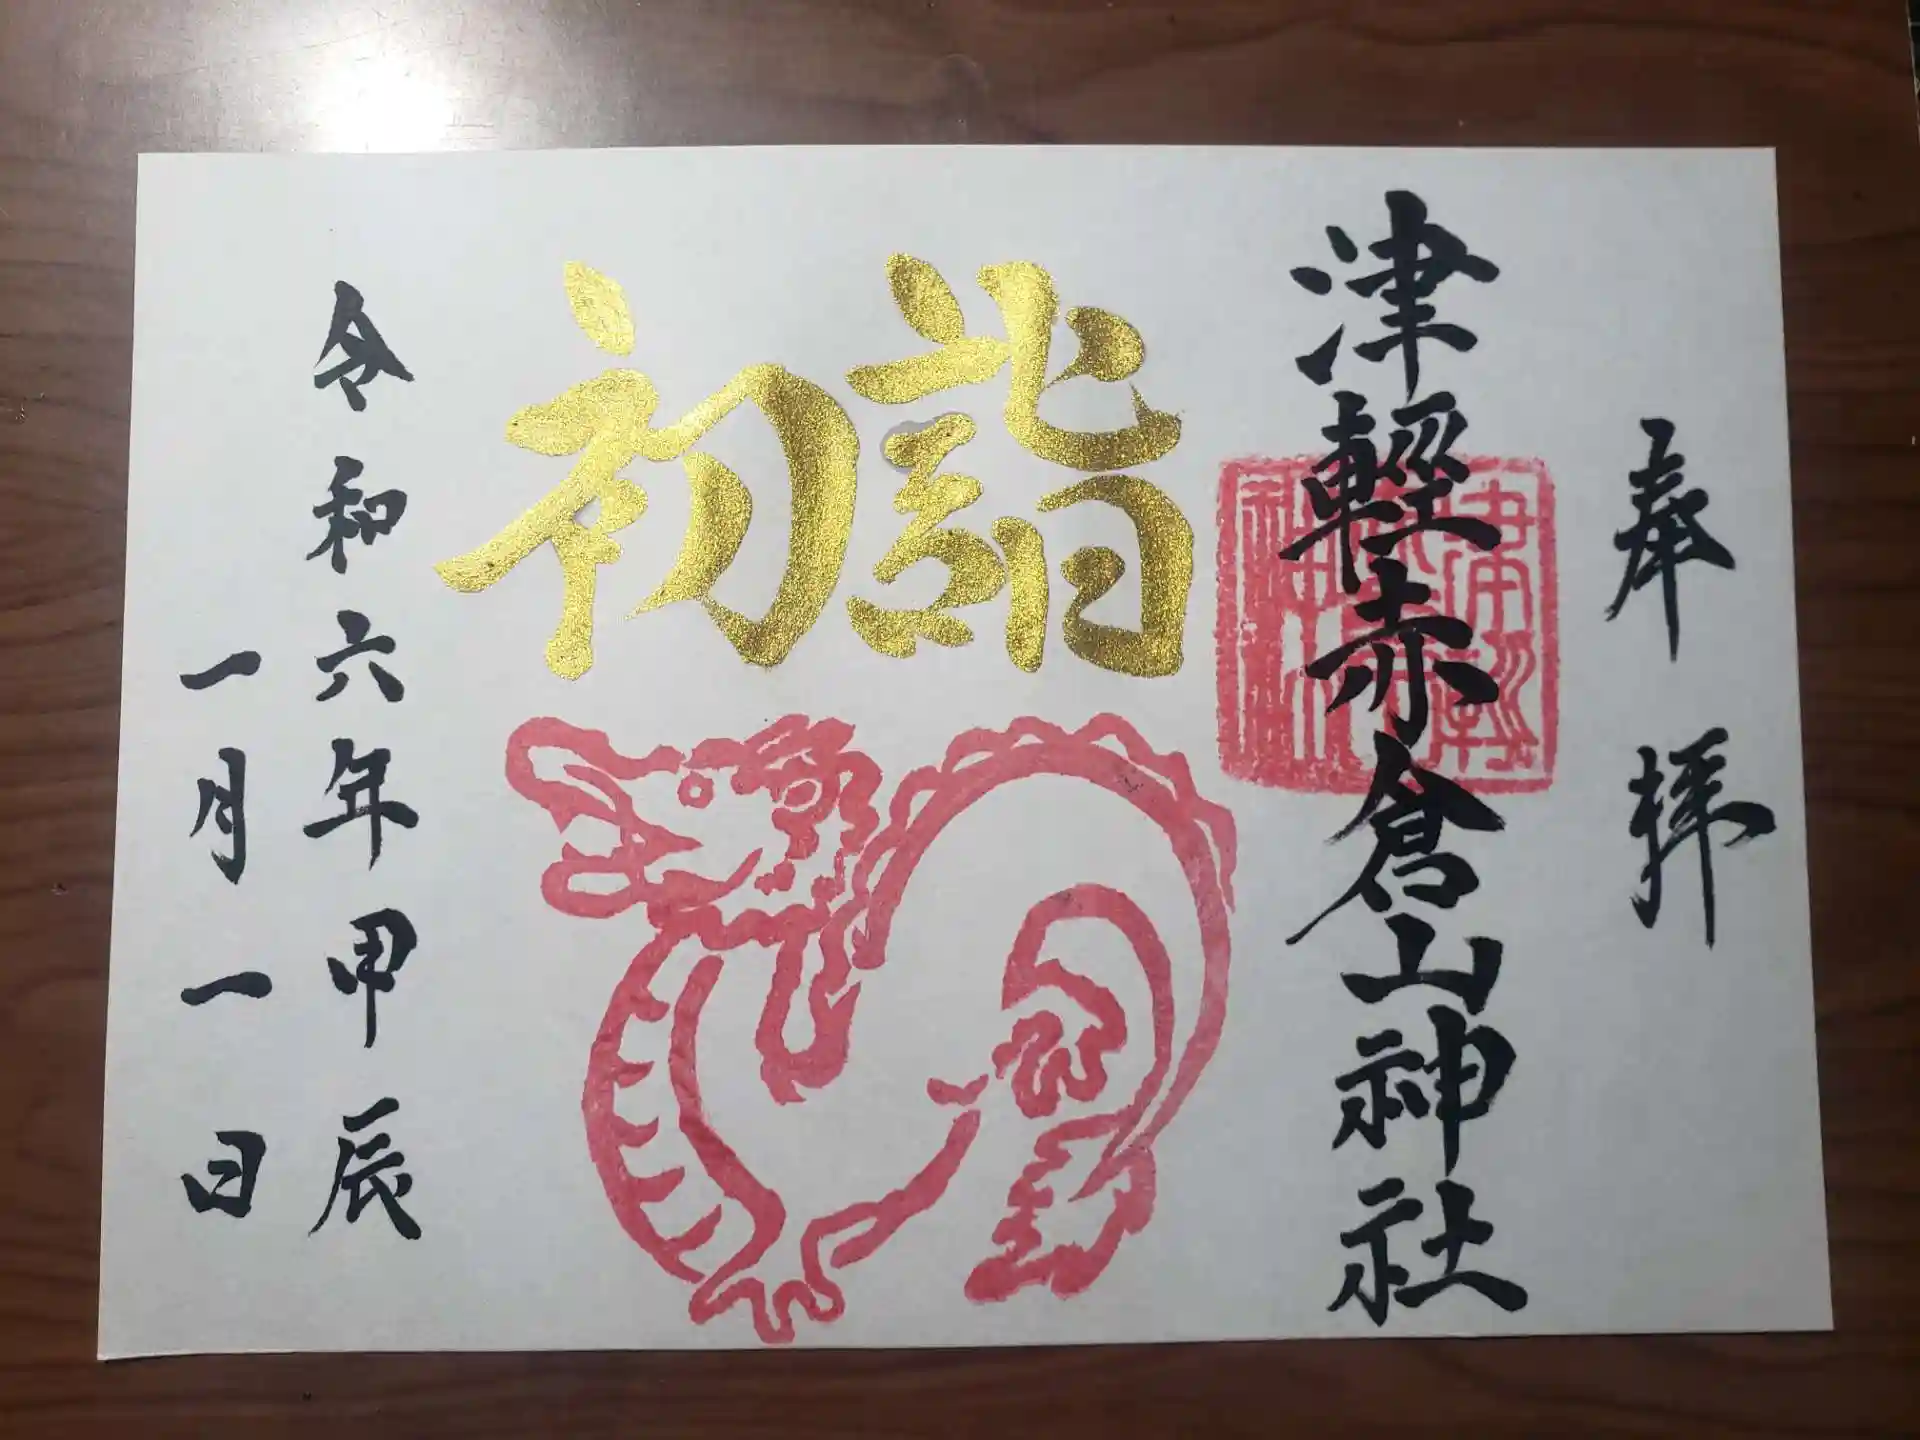 奉拝
津輕赤倉山神社
初詣
令和六年甲辰
一月一日